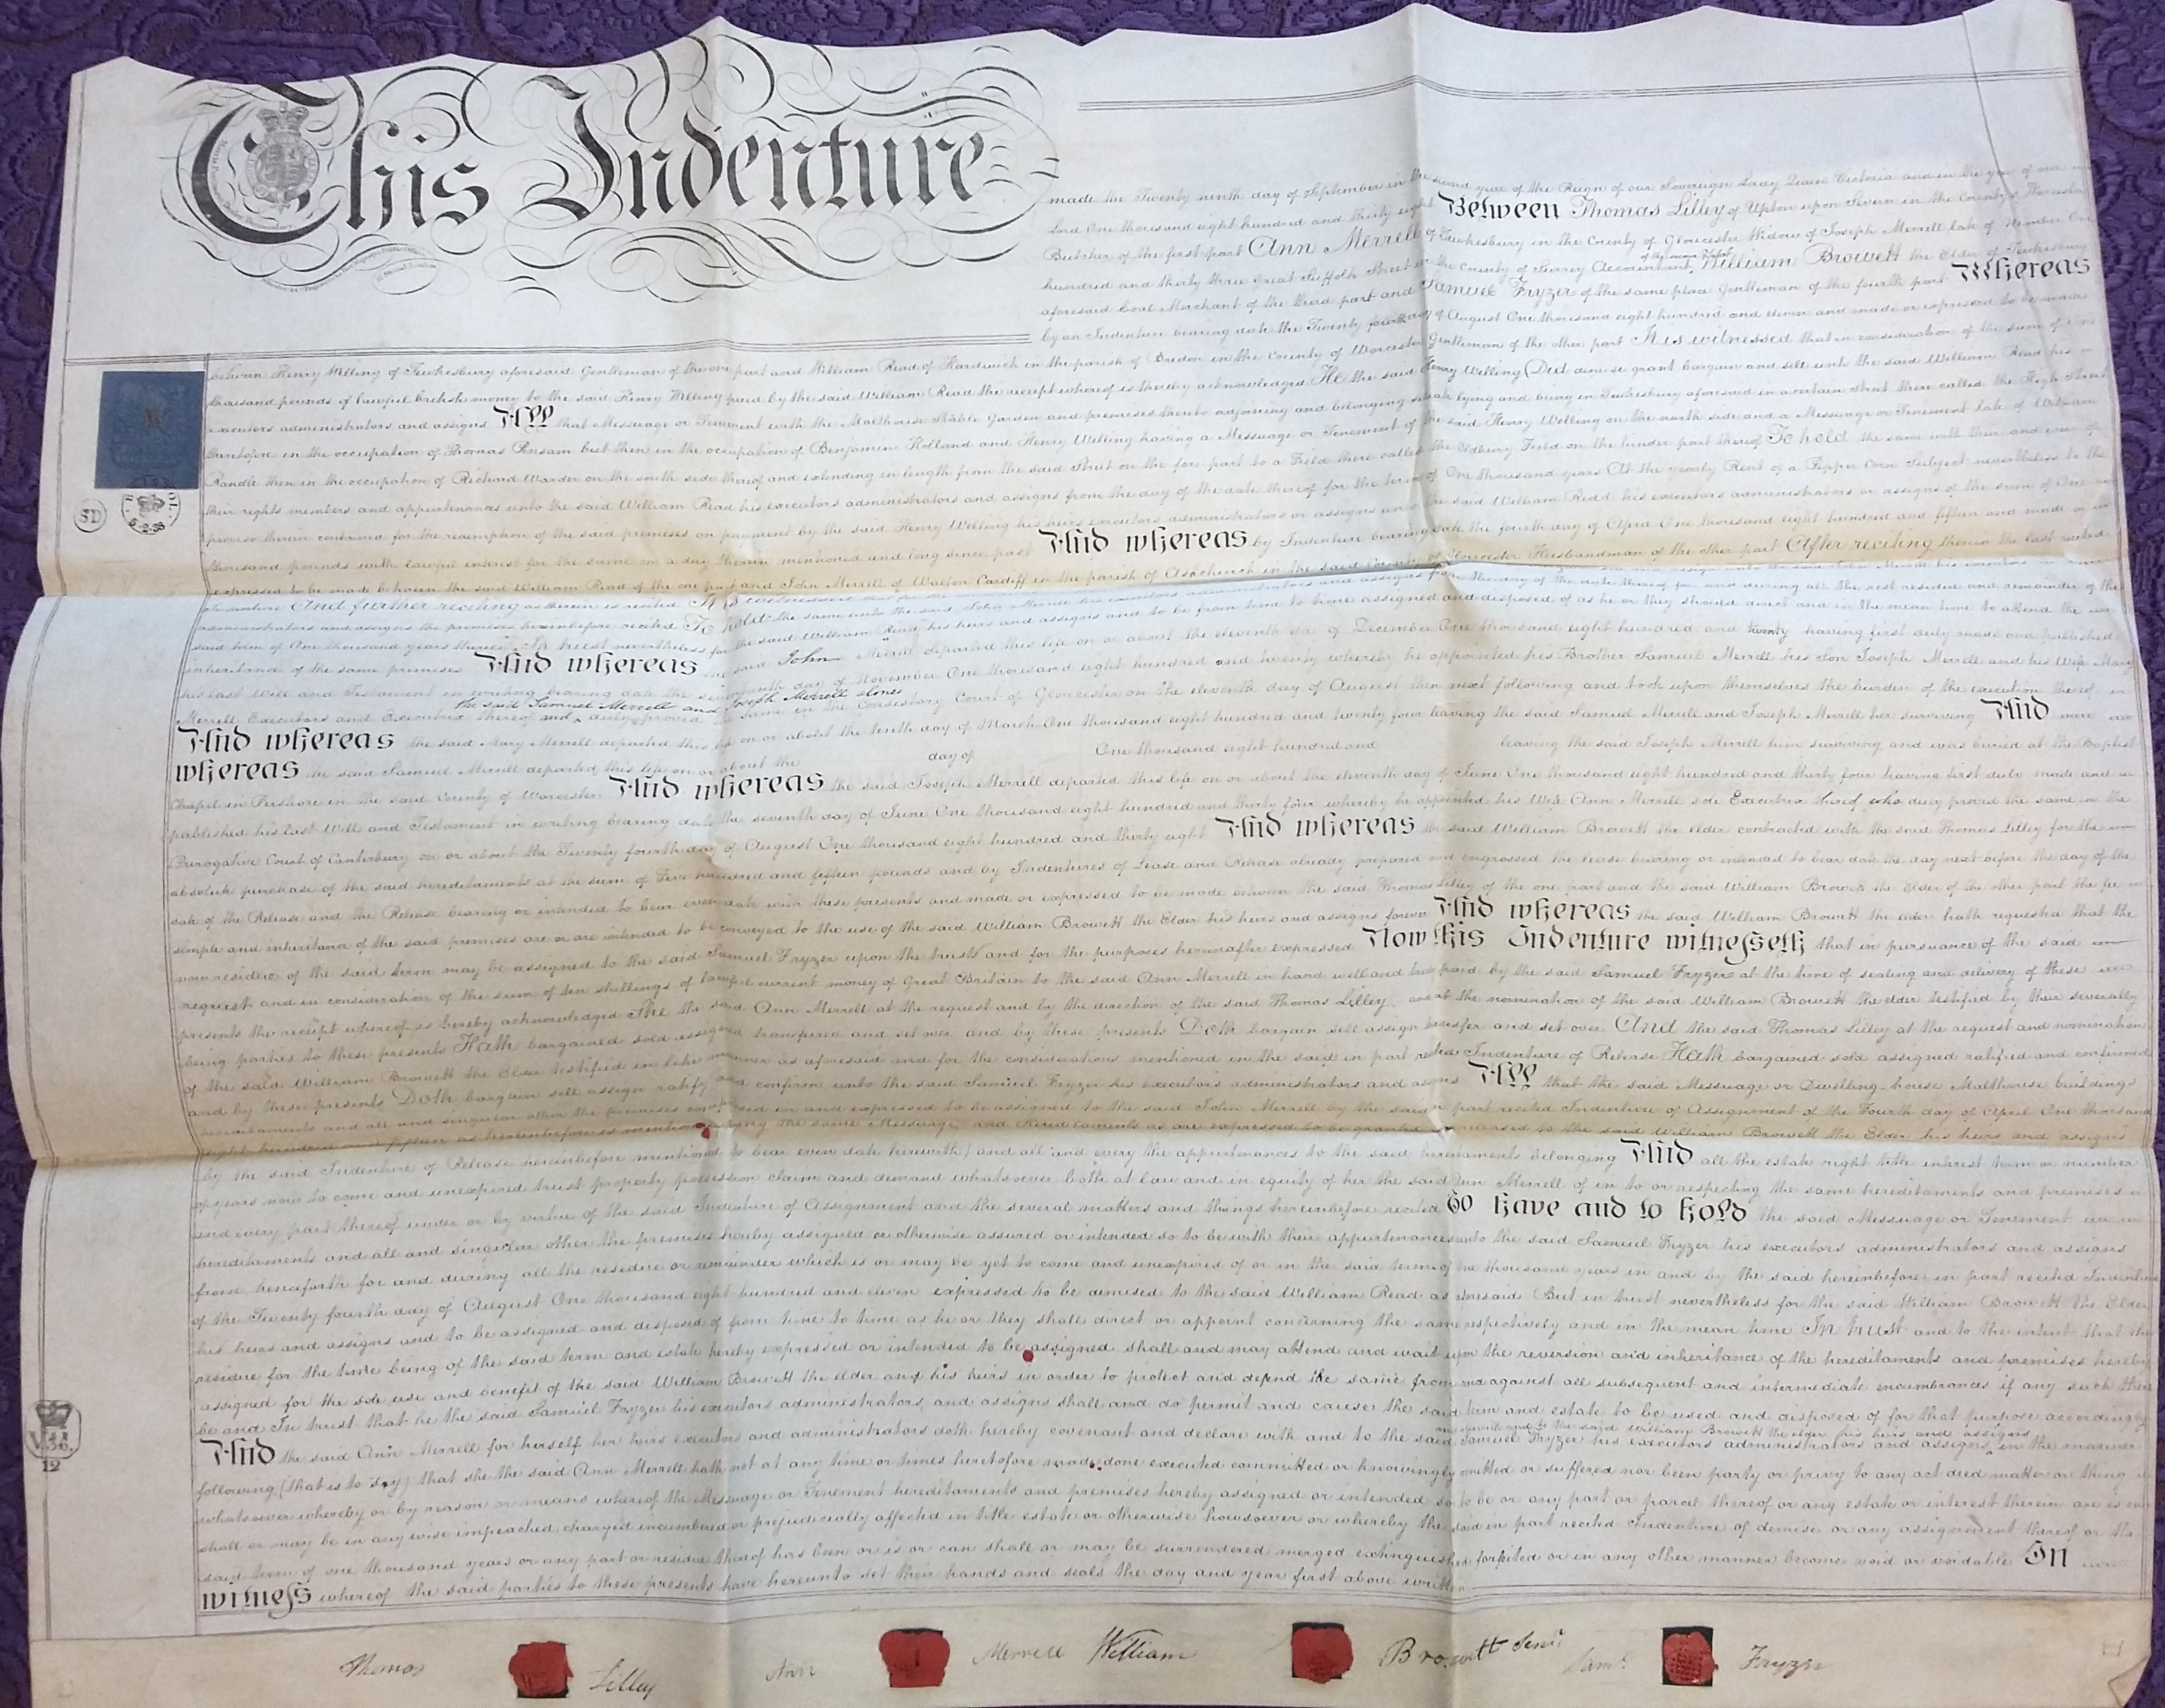 This Indenture
made the Twenty ninth day of September in the second year of the Reign of our Sovereign Lady Queen Victoria and in the year of our
Lord One thousand eight hundred and thirty eight Between Thomas Lilley of Upton upon Severn in the County of Worcester
Butcher of the first part Ann Merrell of Tewkesbury in the County of Gloucester Widow of Joseph Merrell late of Number One
hundred and thirty three Great Suffolk Street in the County of Surrey Accountant of the second part William Browett the Elder of Tewkesbury
aforesaid Coal Merchant of the third part and Samuel Fryzer of the same place Gentleman of the fourth part Whereas
by an Indenture bearing date the Twenty fourth day of August One thousand eight hundred and eleven and made or expressed to be made
between Henry Welling of Tewkesbury aforesaid Gentleman of the one part and William Read of Hardwick in the parish of Bredon in the County of Worcester Gentleman of the other part It is witnessed that in consideration of the sum of One
thousand pounds of lawful british money to the said Henry Welling paid by the said William Read the receipt whereof is thereby acknowledged He the said Henry Welling Did demise grant bargain and sell unto the said William Read his
executors administrators and assigns All that Messuage or Tenement with the Malthouse Stable Garden and premises thereto adjoining and belonging situate lying and being in Tewkesbury aforesaid in a certain Street there called the High Street
theretofore in the occupation of Thomas Pensam but then in the occupation of Benjamin Holland and Henry Welling having a Messuage or Tenement of the said Henry Welling on the north side and a Messuage or Tenement late of William
Randle then in the occupation of Richard Warder on the south side thereof and extending in length from the said Street on the fore part to a Field there called the Oldbury Field on the hinder part thereof To hold the same with their and every of
their rights members and appurtenances unto the said William Read his executors administrators and assigns from the day of the date thereof for the term of One thousand years At the yearly Rent of a Pepper Corn Subject nevertheless to the
proviso therein contained for the redemption of the said premises on payment by the said Henry Welling his heirs executors administrators or assigns unto the said William Read his executors administrators or assigns of the sum of One
thousand pounds with lawful interest for the same on a day therein mentioned and long since past And whereas by Indenture bearing date the fourth day of April One thousand eight hundred and fifteen and made or
expressed to be made between the said William Read of the one part and John Merrell of Walton Cardiff in the parish of Ashchurch in the said County of Gloucester Husbandman of the other part After reciting therein the last recited
Indenture And further reciting as therein is recited It is witnessed that
administrators and assigns the premises hereinbefore recited To hold the same unto the said John Merrell his executors administrators and assigns from the day of the date thereof for and during all the rest residue and remainder of the
said term of One thousand years therein In trust nevertheless for the said William Read his heirs and assigns and to be from time to time assigned and disposed of as he or they should direct and in the mean time to attend the
inheritance of the same premises And whereas the said John Merrell departed this life on or about the eleventh day of December One thousand eight hundred and twenty having first duly made and published
his last Will and Testament in writing bearing date the seventeenth day of November One thousand eight hundred and twenty whereby he appointed his Brother Samuel Merrell his Son Joseph Merrell and his Wife Mary
Merrell Executors and Executrix thereof and the said Samuel Merrell and Joseph Merrell alone duly proved the same in the Consistory Court of Gloucester on the eleventh day of August then next following and took upon themselves the burden of the execution thereof
And whereas the said Mary Merrell departed this life on or about the tenth day of March One thousand eight hundred and twenty four leaving the said Samuel Merrell and Joseph Merrell her surviving And
whereas the said Samuel Merrell departed this life on or about the day of One thousand eight hundred and leaving the said Joseph Merrell him surviving and was buried at the Baptist
Chapel in Pershore in the said County of Worcester And whereas the said Joseph Merrell departed this life on or about the eleventh day of June One thousand eight hundred and thirty four having first duly made and
published his last Will and Testament in writing bearing date the seventh day of June One thousand eight hundred and thirty four whereby he appointed his Wife Ann Merrell sole Executrix thereof who duly proved the same in the
Prerogative Court of Canterbury on or about the Twenty fourth day of August One thousand eight hundred and thirty eight And whereas the said William Browett the elder contracted with the said Thomas Lilley for the
absolute purchase of the said hereditaments at the sum of Five hundred and fifteen pounds and by Indentures of Lease and Release already prepared and engrossed the lease bearing or intended to bear date the day next before the day of the
date of the Release and the Release bearing or intended to bear even date with these presents and made or expressed to be made between the said Thomas Lilley of the one part and the said William Browett the Elder of the other part the fee
simple and inheritance of the said premises are or are intended to be conveyed to the use of the said William Browett the Elder his heirs and assigns forever And whereas the said William Browett the elder hath requested that the
now residue of the said term may be assigned to the said Samuel Fryzer upon the trusts and for the purposes hereinafter expressed Now this Indenture witnesseth that in pursuance of the said
request and in consideration of the sum of ten shillings of lawful current money of Great Britain to the said Ann Merrell in hand well and truly paid by the said Samuel Fryzer at the time of sealing and delivery of these
presents the receipt whereof is hereby acknowledged She the said Ann Merrell at the request and by the direction of the said Thomas Lilley and at the nomination of the said William Browett the elder testified by their severally
being parties to these presents Hath bargained sold assigned transferred and set over and by these presents Doth bargain sell assign transfer and set over And the said Thomas Lilley at the request and nomination
of the said William Browett the Elder testified in like manner as aforesaid and for the considerations mentioned in the said in part recited Indenture of Release Hath bargained sold assigned ratified and confirmed
and by these presents Doth bargain sell assign ratify and confirm unto the said Samuel Fryzer his executors administrators and assigns All that the said Messuage or Dwelling-house Malthouse buildings
hereditaments and all and singular other the premises comprised in and expressed to be assigned to the said John Merrell by the said in part recited Indenture of Assignment of the Fourth day of April One thousand
eight hundred and fifteen as hereinbefore is mentioned being the same Messuage and Hereditaments as are expressed to be granted released to the said William Browett the Elder his heirs and assigns
by the said Indenture of Release hereinbefore mentioned to bear even date herewith) and all and every the appurtenances to the said hereditaments belonging And all the estate right title interest term or number
of years now to come and unexpired trust property possession claim and demand whatsoever both at law and in equity of her the said Ann Merrell of in to or respecting the same hereditaments and premises
and every part thereof under or by virtue of the said Indenture of Assignment and the several matters and things hereinbefore recited To have and to hold the said Messuage or Tenement
hereditaments and all and singular other the premises hereby assigned or otherwise assured or intended so to be with their appurtenances unto the said Samuel Fryzer his executors administrators and assigns
from henceforth for and during all the residue or remainder which is or may be yet to come and unexpired of or in the said term of One thousand years in and by the said hereinbefore in part recited Indenture
of the Twenty fourth day of August One thousand eight hundred and eleven expressed to be demised to the said William Read as aforesaid But in trust nevertheless for the said William Browett the Elder
his heirs and assigns and to be assigned and disposed of from time to time as he or they shall direct or appoint concerning the same respectively and in the mean time In trust and to the intent that the
residue for the time being of the said term and estate hereby expressed or intended to be assigned shall and may attend and wait upon the reversion and inheritance of the hereditaments and premises hereby
assigned for the sole use and benefit of the said William Browett the elder and his heirs in order to protect and defend the same from and against all subsequent and intermediate encumbrances if any such there
be and In trust that he the said Samuel Fryzer his executors administrators and assigns shall and do permit and cause the said term and estate to be used and disposed of for that purpose accordingly
And the said Ann Merrell for herself her heirs executors and administrators doth hereby covenant and declare with and to the said Samuel Fryzer his executors administrators and assigns and also with and to the said William Browett the elder his heirs and assigns in the manner
following (that is to say) that she the said Ann Merrell hath not at any time or times heretofore made done executed committed or knowingly omitted or suffered nor been party or privy to any act deed matter or thing
whatsoever whereby or by reason or means whereof the Messuage or Tenement hereditaments and premises hereby assigned or intended so to be or any part or parcel thereof or any estate or interest therein are is can
shall or may be in any wise impeached charged incumbered or prejudicially affected in title estate or otherwise howsoever or whereby the said in part recited Indenture of demise or any assignment thereof or the
said term of one thousand years or any part or residue thereof has been or is or can shall or may be surrendered merged extinguished forfeited or in any other manner become void or voidable In
witness whereof the said parties to these presents have hereunto set their hands and seals the day and year first above written
SD
V.36.
12
Thomas Lilley Ann Merrell William Browett Senr Saml Fryzer